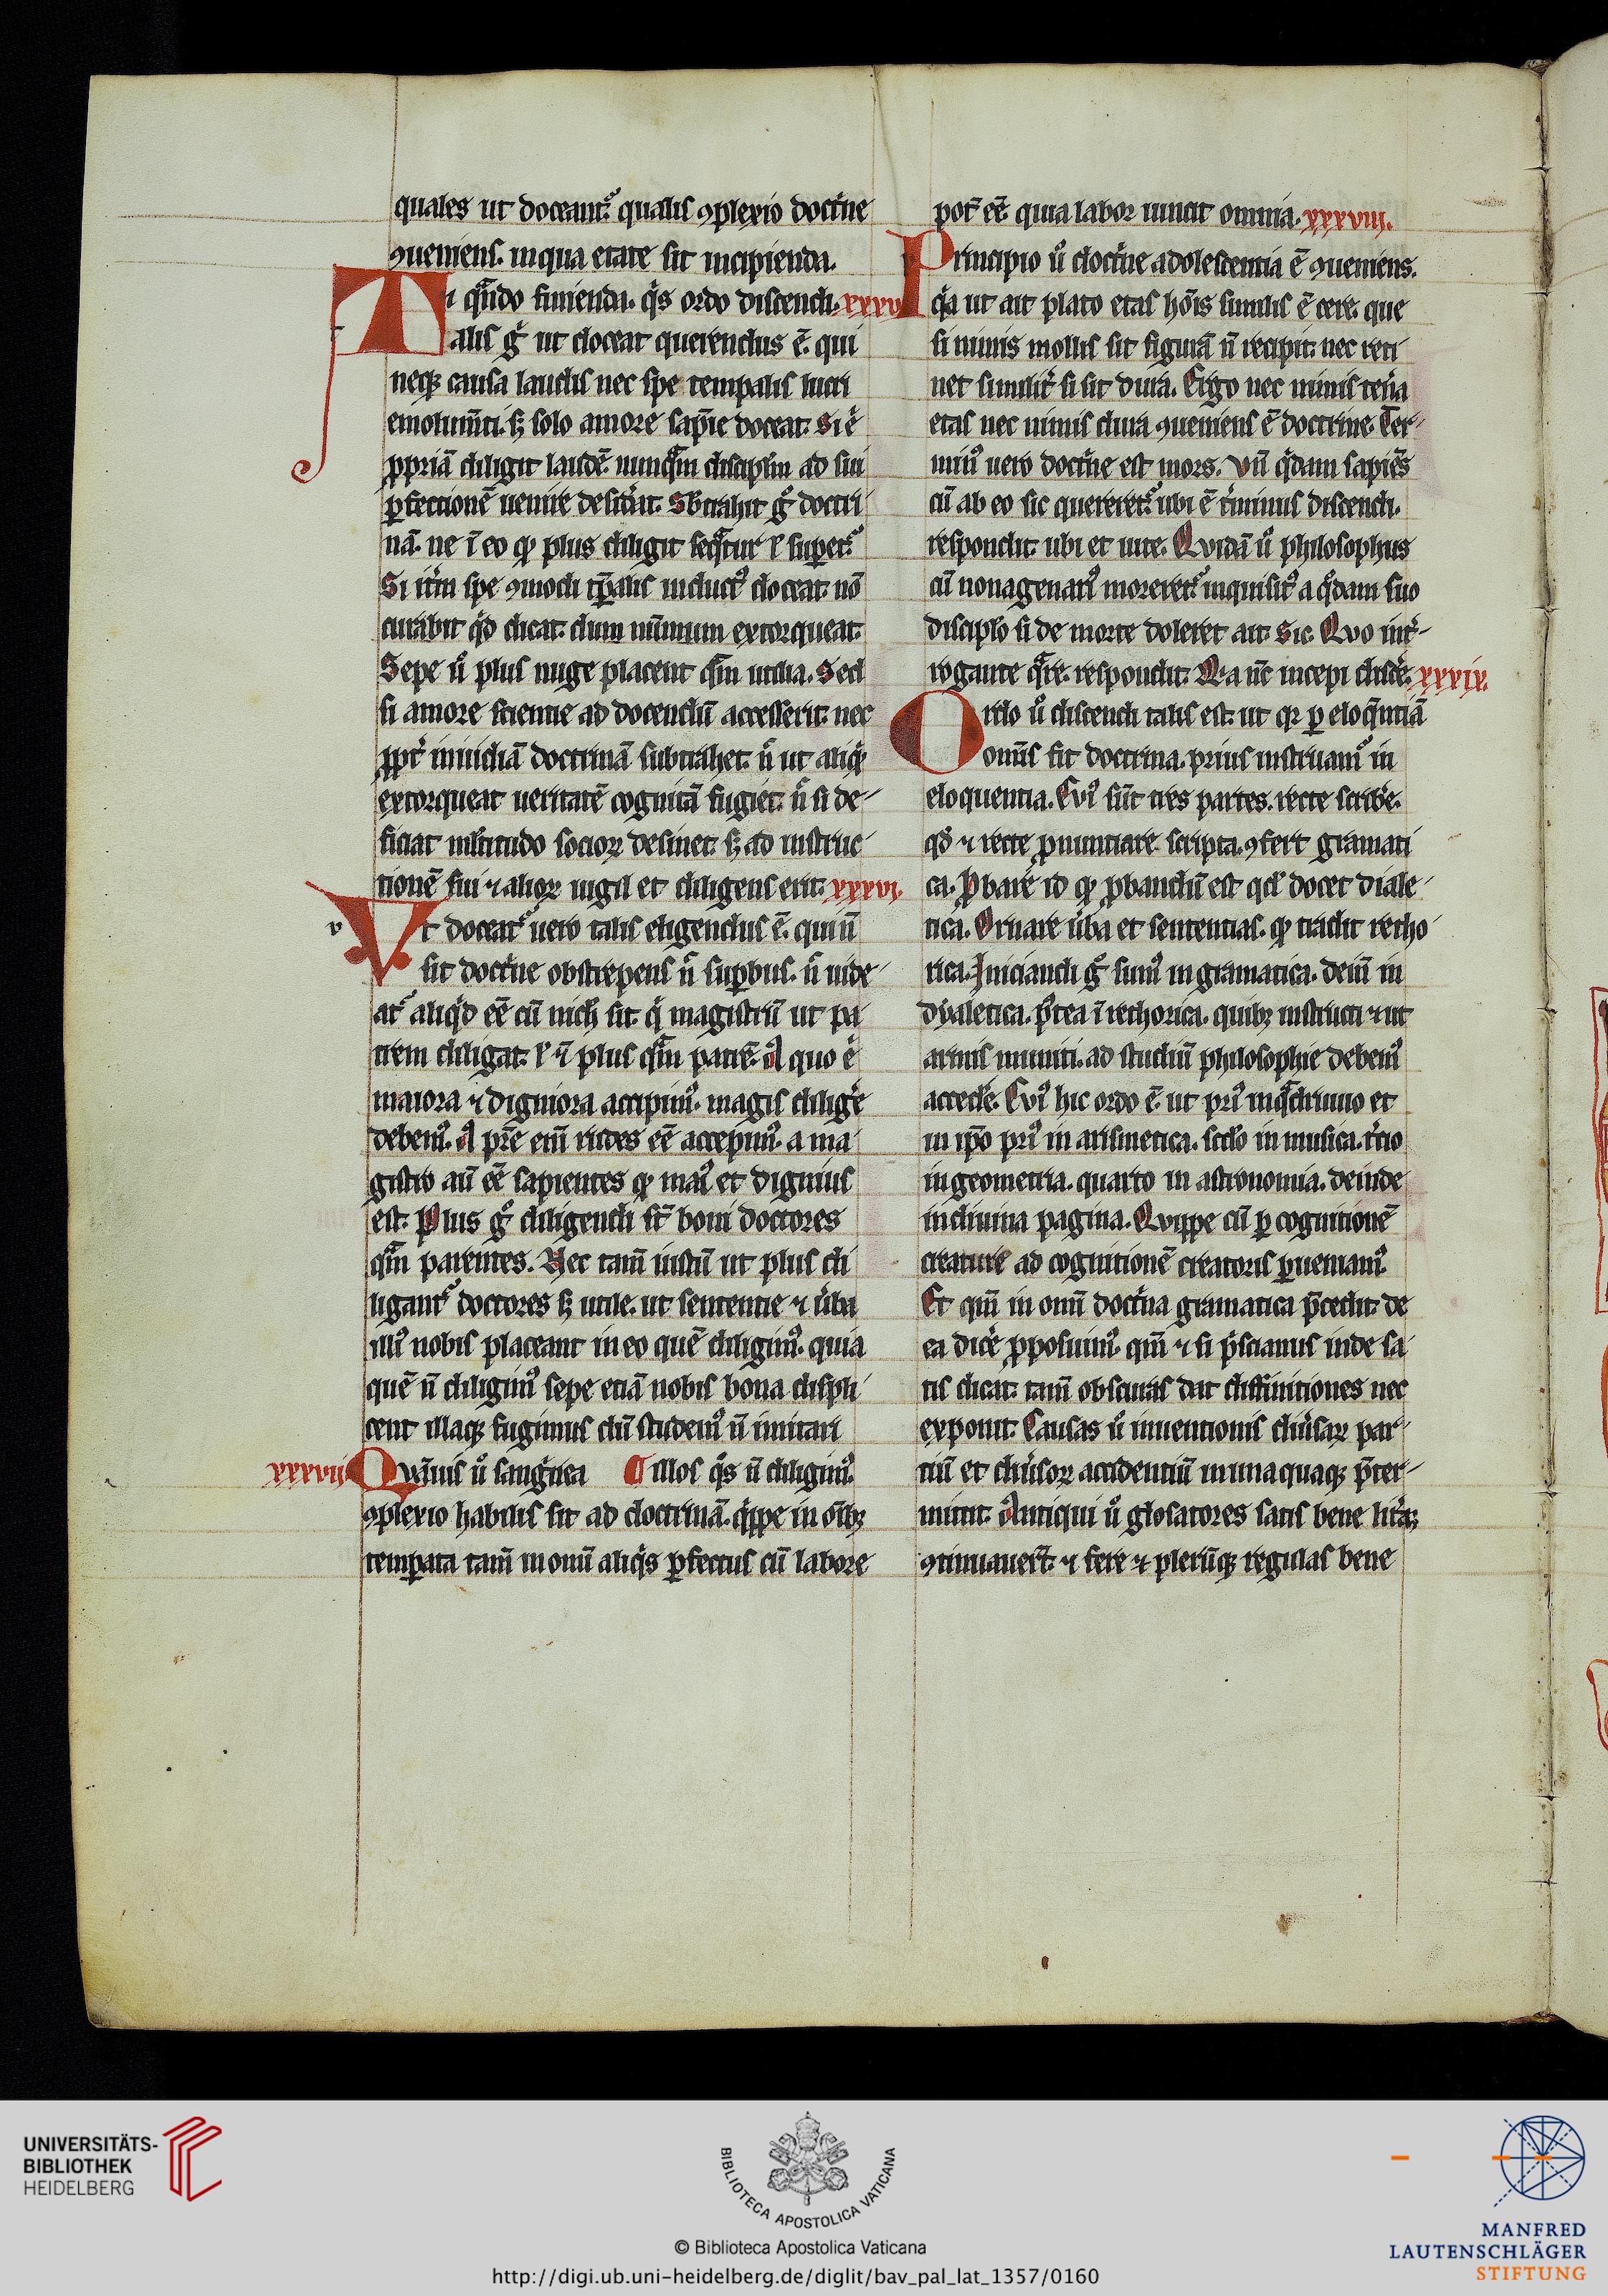 quales ut doceant᷑ qualis ꝯplexio doct͛ne
ꝯueniens. in qua etate sit incipienda.
i qn̄do finienda. q͛s ordo discendi. xxxv
Talis g̊ ut doceat querendus ē. qui
neq; causa laudis nec spe tempalis lucri
emolum̄ti. s; solo amore sapīe doceat. Si .n.
ꝓpriā diligit laudē. nunq̄m discipl̄m ad sui
ꝑfectionē uenire desid͛at. Sb̄trahit g̊ doctri
nā. ne ī eo qd̄ plus diligit seq̄tur ł supet᷑
Si it͛m spe ꝯmodi tp̄alis induct᷒ doceat. nō
curabit q͛d dicat. dum nūmum extorqueat.
Sepe u̅ plus nuge placent qm̄ utilia. Sed
si amore scientie ad docendū accesserit. nec
ꝓpt͛ inuidiā doctrinā subtrahet. n̄ ut aliq͛d
extorqueat ueritatē cognitā fugiet. n̄ si de-
ficiat ml̄titudo socioꝝ desinet. s; ad instruc-
tionē sui ⁊ alioꝝ uigil et diligens erit. xxxvi.
v
Vt doceat᷑ uero talis eligendus ē. qui n̄
sit doct͛ne obstrepens n̄ suꝑbus. n̄ uide-
at᷑ aliq͛d eē cū nich̄ sit. q͛ magistrū ut pa
trem diligat. ł ⁊ plus qm̄ patrē. A quo .n.
maiora ⁊ digniora accipim᷒. magis dilig͛e
debem᷒. A pr̄e eni̅ rudes eē accepim᷒. a ma-
gistro au̅ eē sapientes qd̄ mai᷒ et dignius
est. Plus g̊ diligendi st̄ boni doctores
qm̄ parentes. Nec tam̄ iustū ut plus di
ligant᷑ doctores s; utile. ut sententie ⁊ u͛ba
illi᷒ nobis placeant in eo quē diligim᷒. quia
quē n̄ diligim᷒ sepe etiā nobis bona displi-
cent illaq; fugimus dū studem᷒ n̄ imitari
xxxvii Qvāuis u̅ sang͛nea ¶ illos q͛s n̄ diligim᷒.
ꝯplexio habilis sit ad doctrinā. q͛ppe in oīb;
temꝑata tam̄ in omī aliq͛s ꝑfectus cū labore
pot᷑ eē. quia labor uincit omnia. xxxviii.
Principio u̅ doct͛ne adolescentia ē ꝯueniens.
q͛a ut ait plato etas hōis similis ē cere. que
si nimis mollis sit figurā n̄ recipit. nec reti
net similit͛ si sit dura. Ergo nec nimis ten͛a
etas nec nimis dura ꝯueniens ē doctrine. Ter-
min᷒ uero doct͛ne est mors. Vn̄ q͛dam sapiēs
cū ab eo sic quereret᷑ ubi ē t͛minus discendi.
respondit. ubi et uite. Quidā u̅ philosophus
cū nonagenari᷒ moreret᷑ inquisit᷒ a q͛dam suo
disciplo si de morte doleret ait. Sic. Quo int͛-
rogante q̄re. respondit. Q͛a nc̄ incepi disc͛e. xxxix.
Ordo u̅ discendi talis est. ut qꝛ ꝑ eloq̄ntiā
omīs fit doctrina. prius instruam᷒ in
eloquentia. Cui᷒ sūt tres partes. recte scrib͛e.
qd̄ ⁊ recte ꝓnuntiare scripta. ꝯfert gramati
ca. Ꝓbare id qd̄ ꝓbandū est qd̄ docet diale-
tica. Ornare u͛ba et sententias. qd̄ tradit retho-
rica. Iniciandi g̊ sum᷒ in gramatica. dein̄ in
dyaletica. p᷒tea ī rethorica. quib; instructi ⁊ ut
armis muniti. ad studiū philosophie debem᷒
acced͛e. Cui᷒ hic ordo ē. ut pri᷒ in q̄driuuo et
in ip̄o pri᷒ in arismetica. scd̄o in musica. t͛cio
in geometria. quarto in astronomia. deinde
in diuina pagina. Quippe cū ꝑ cognitionē
creature ad cognitionē creatoris ꝑueniam᷒.
Et qm̄ in omī doct͛na gramatica p̄cedit. de
ea dic͛e ꝓposuim᷒. qm̄ ⁊ si p͛scianus inde sa
tis dicat. tam̄ obscuras dat diffinitiones nec
exponit. Causas u̅ inuentionis diu͛saꝝ par-
tiū et diu͛soꝝ accidentiū in una quaq; p̄ter-
mittit. Antiqui u̅ glosatores satis bene litt͛as
ꝯtinuauer̄t. ⁊ fere ⁊ pler̄ūq; regulas bene
UNIVERSITÄTS-
BIBLIOTHEK
HEIDELBERG
BIBLIOTECA APOSTOLICA VATICANA
© Biblioteca Apostolica Vaticana
http://digi.ub.uni-heidelberg.de/diglit/bav_pal_lat_1357/0160
MANFRED
LAUTENSCHLÄGER
STIFTUNG